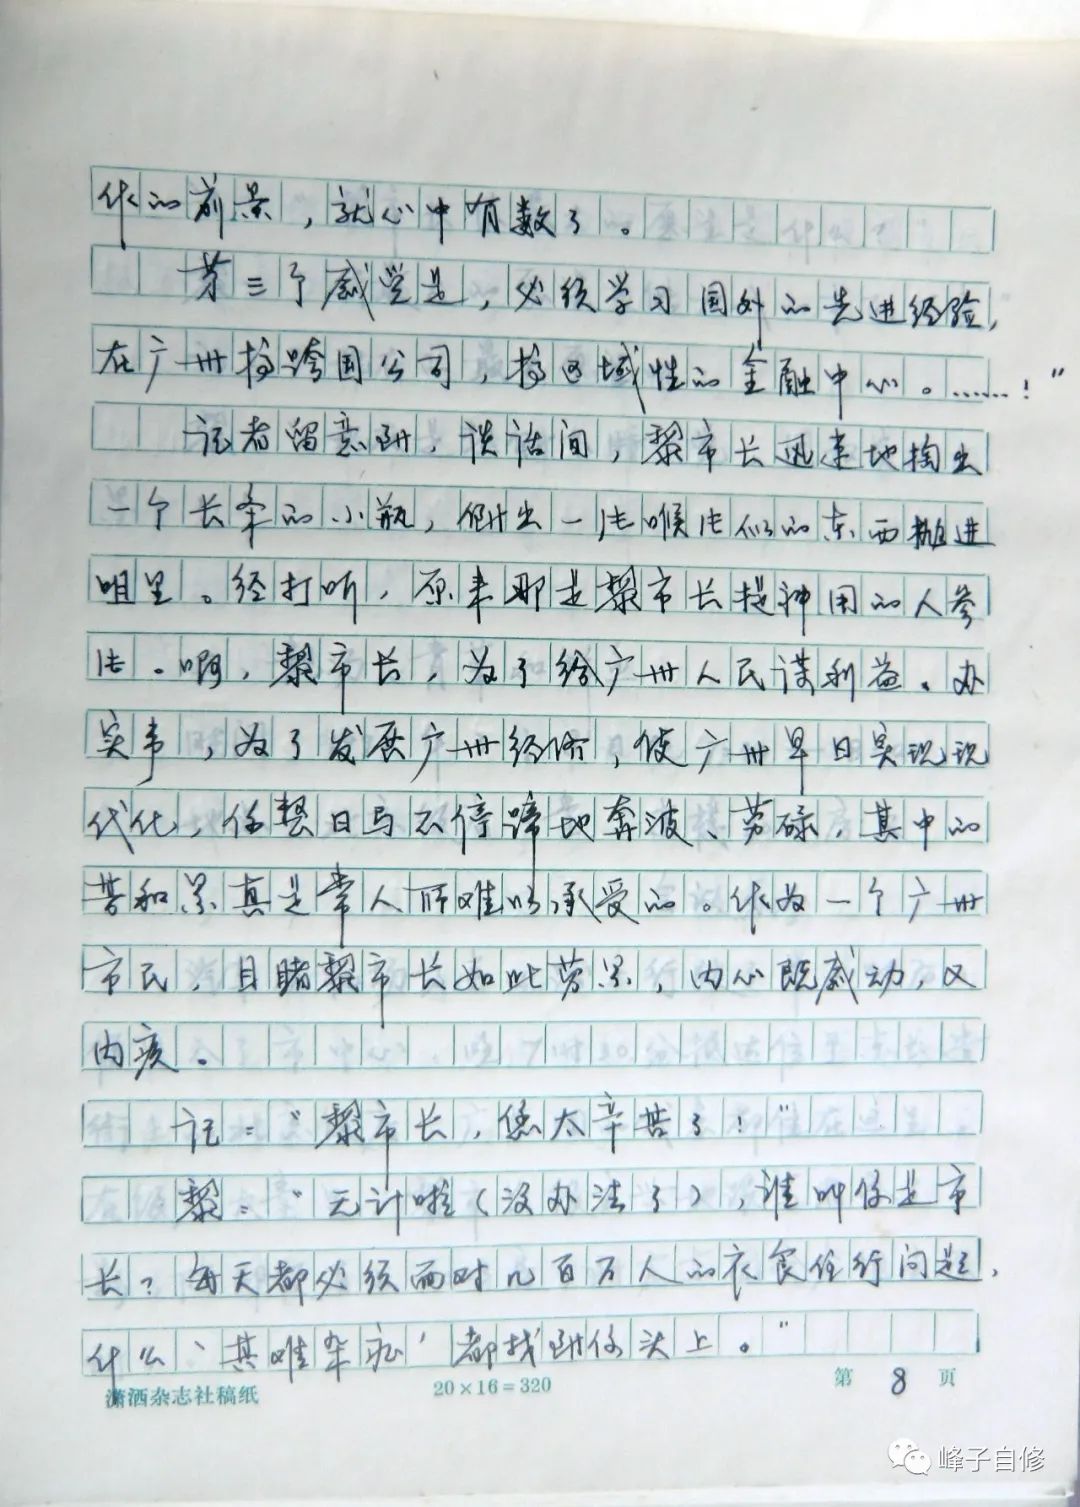 作的前景，就心中有数了。
第三个感觉是，必须学习国外的先进经验，
在广州搞跨国公司，搞区域性的金融中心。……！”
记者留意到，谈话间，黎市长迅速地掏出
一个长条的小瓶，倒出一片喉片似的东西抛进
咀里。经打听，原来那是黎市长提神用的人参
片。啊，黎市长，为了给广州人民谋利益、办
实事，为了发展广州经济，使广州早日实现现
代化，你整日马不停蹄地奔波、劳碌，其中的
苦和累真是常人所难以承受的。作为一个广州
市民，目睹黎市长如此劳累，内心既感动，又
内疚。
记：“黎市长，您太辛苦了！”
黎：“无计啦（没办法了），谁叫你是市
长？每天都必须面对几百万人的衣食住行问题，
什么‘其难杂症’都找到你头上。”
潇洒杂志社稿纸 20×16=320 第 8 页
峰子自修